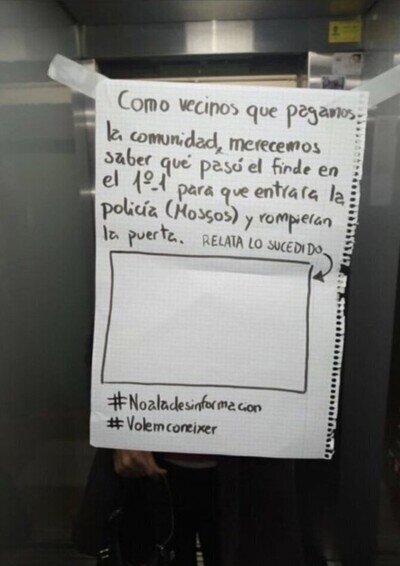 Como vecinos que pagamos
la comunidad, merecemos
saber qué pasó el finde en
el 1º-1 para que entrara la
policía (Mossos) y rompieran
la puerta. RELATA LO SUCEDIDO
#Noaladesinformacion
#Volemconeixer